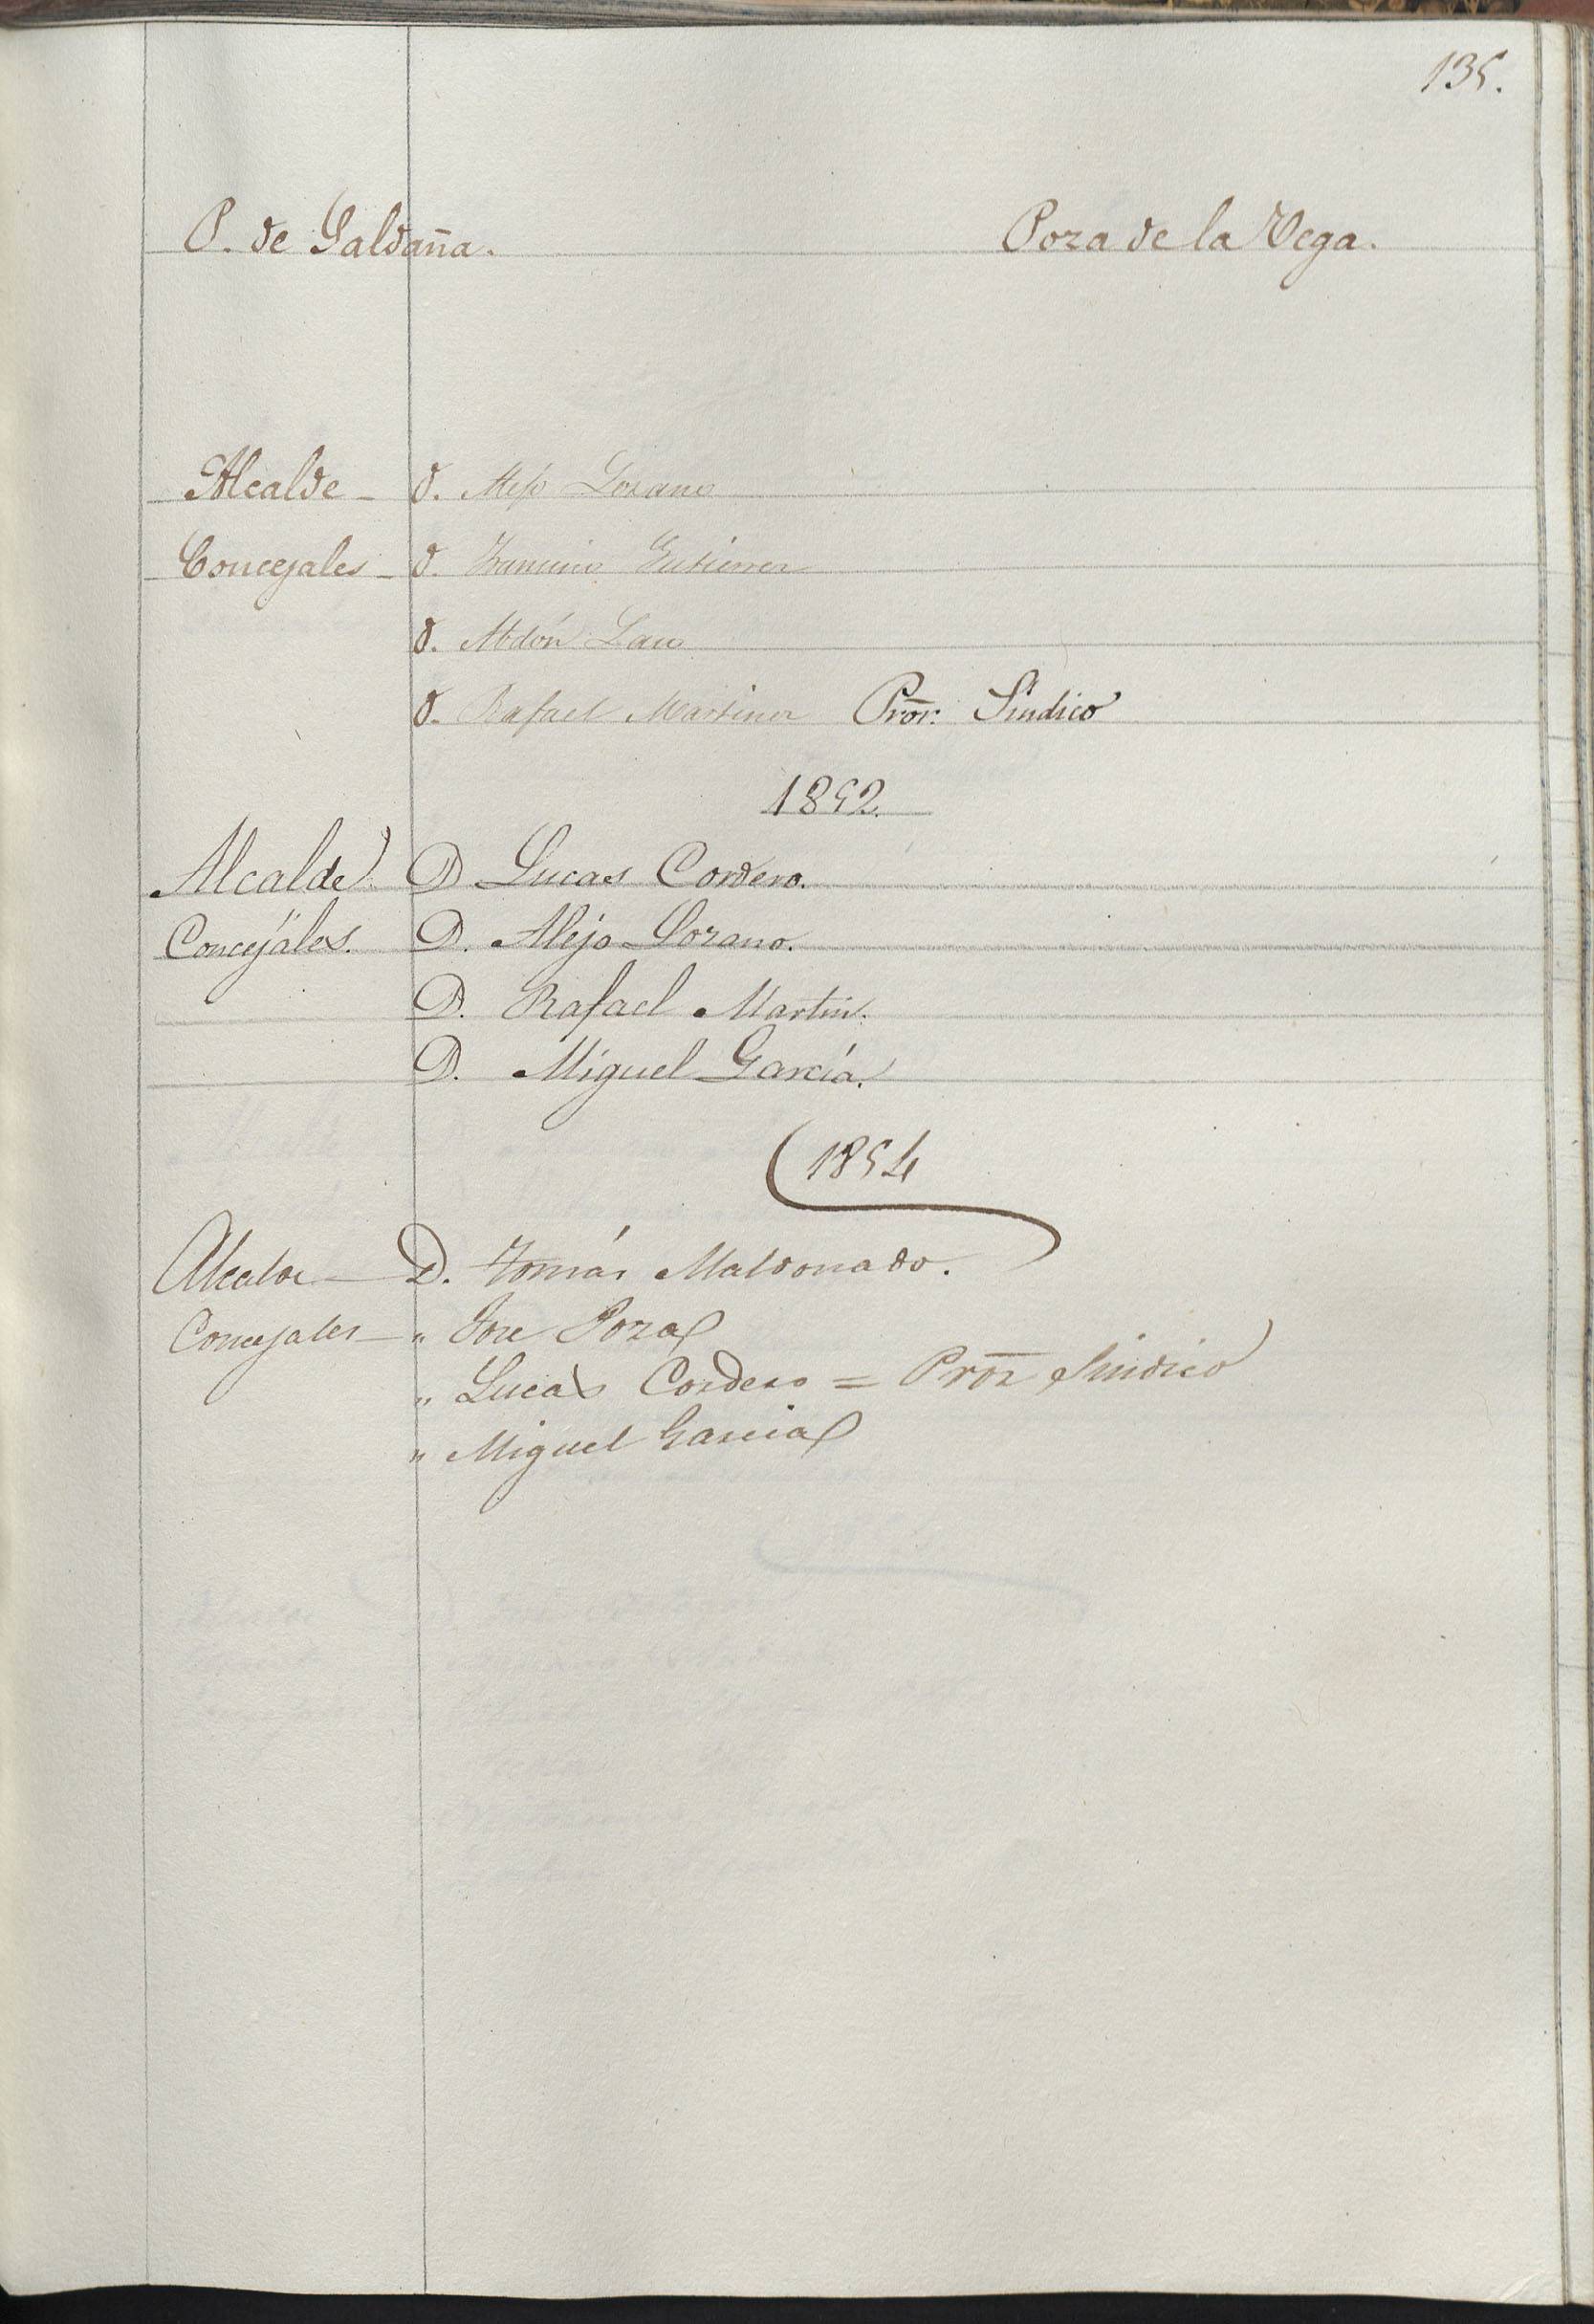 135.
P. de Saldaña. Poza de la Vega.
Alcalde - D. Alejo Lozano
Concejales - D. Francisco Gutierrez
D. Abdón Laso
D. Rafael Martinez Pror. Sindico
1852.
Alcalde D. Lucas Cordero.
Concejales. D. Alejo Lozano.
D. Rafael Martin.
D. Miguel García.
1854
Alcalde - D. Tomás Maldonado.
Concejales - " Jose Poza
" Lucas Cordero = Pror Sindico
" Miguel Garcia